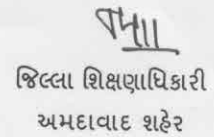 જિલ્લા શિક્ષણાધિકારી
અમદાવાદ શહેર